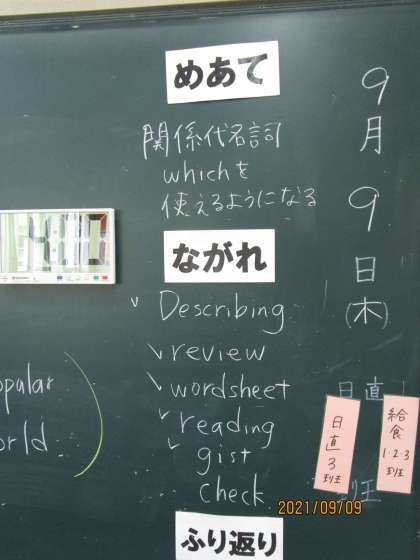 めあて
関係代名詞
whichを
使えるようになる
ながれ
Describing
review
wordsheet
reading
gist
check
ふり返り
9月9日(木)
日直
日直3班
給食1·2·3班
班
opular
orld
2021/09/09